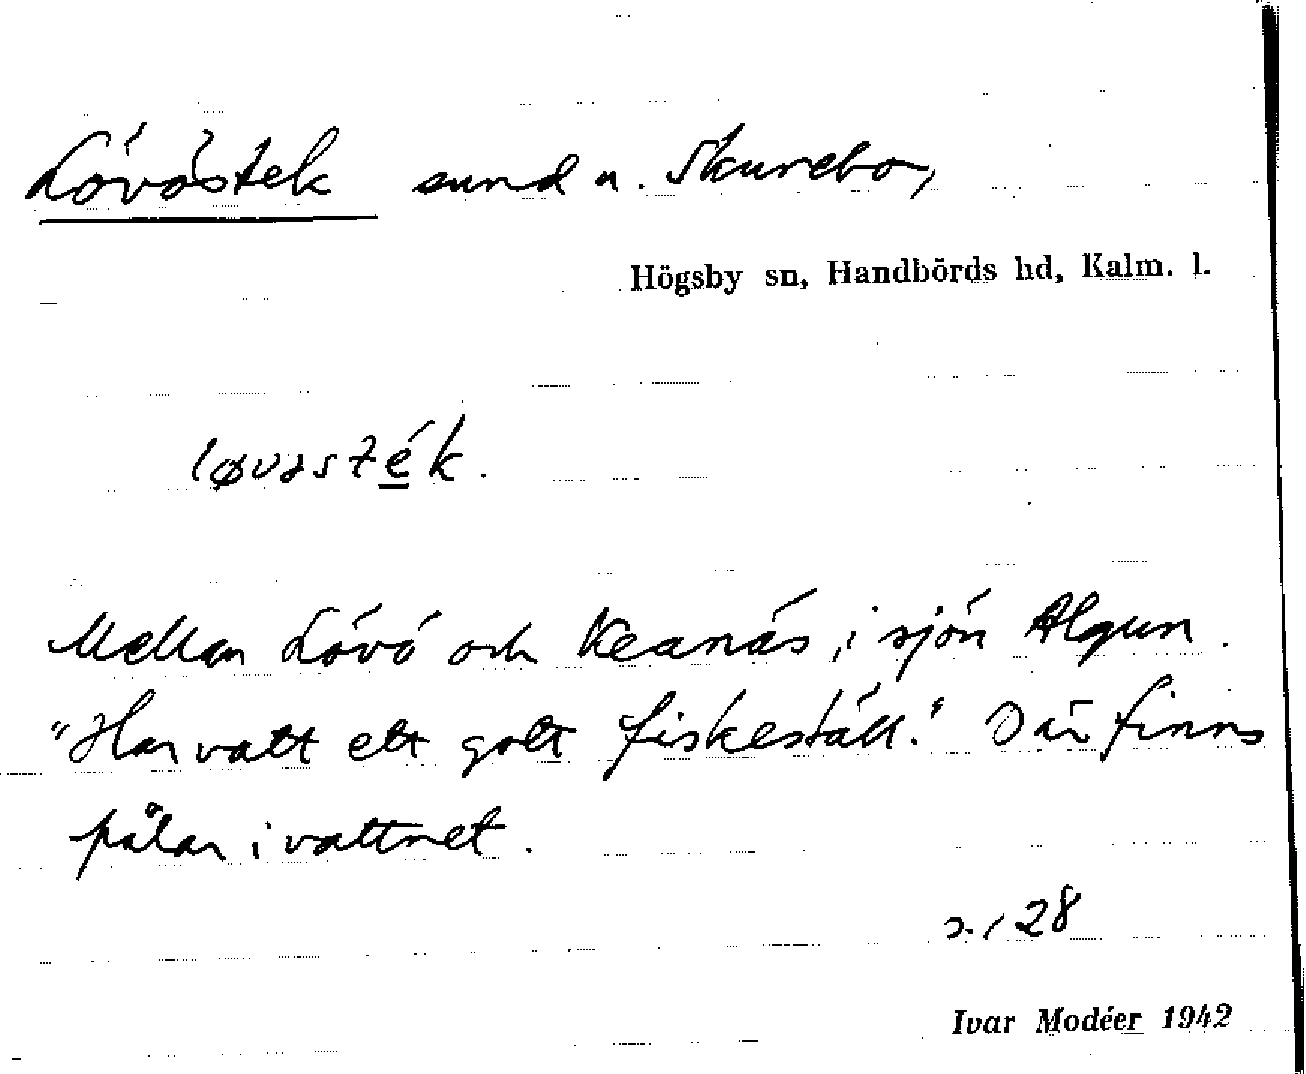 Lövöstek sund u. Skurebo,
Högsby sn, Handbörds hd, Kalm. l.
løvəsték.
Mellan Lövö och Keanäs, i sjön Algun.
"Har vatt ett gott fiskeställ." Där finns
pålar i vattnet.
28
Ivar Modéer 1942